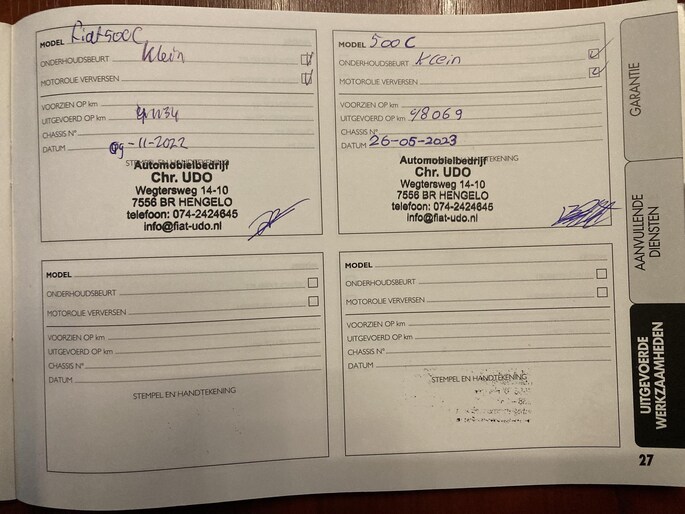 MODEL Fiat 500C
ONDERHOUDSBEURT Klein
MOTOROLIE VERVERSEN
VOORZIEN OP km
UITGEVOERD OP km
CHASSIS N°
DATUM 09-11-2022
STEMPEL EN HANDTEKENING
Automobielbedrijf
Chr. UDO
Wegtersweg 14-10
7556 BR HENGELO
telefoon: 074-2424645
info@fiat-udo.nl
MODEL 500C
ONDERHOUDSBEURT Klein
MOTOROLIE VERVERSEN
VOORZIEN OP km
UITGEVOERD OP km 48069
CHASSIS N°
DATUM 26-05-2023
STEMPEL EN HANDTEKENING
Automobielbedrijf
Chr. UDO
Wegtersweg 14-10
7556 BR HENGELO
telefoon: 074-2424645
info@fiat-udo.nl
MODEL
ONDERHOUDSBEURT
MOTOROLIE VERVERSEN
VOORZIEN OP km
UITGEVOERD OP km
CHASSIS N°
DATUM
STEMPEL EN HANDTEKENING
MODEL
ONDERHOUDSBEURT
MOTOROLIE VERVERSEN
VOORZIEN OP km
UITGEVOERD OP km
CHASSIS N°
DATUM
STEMPEL EN HANDTEKENING
GARANTIE
AANVULLENDE
DIENSTEN
UITGEVOERDE
WERKZAAMHEDEN
27